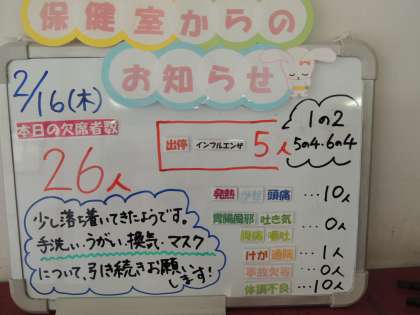 保健室からの
お知らせ
2/16(木)
本日の欠席者数
26人
出停 インフルエンザ 5人
1の2
5の4・6の4
発熱 かぜ 頭痛 …10人
胃腸風邪 吐き気
腹痛 嘔吐 …0人
けが 通院 …1人
事故欠等 …0人
体調不良 …10人
少し落ち着いてきたようです。
手洗い・うがい、換気・マスク
について、引き続きお願い
します!